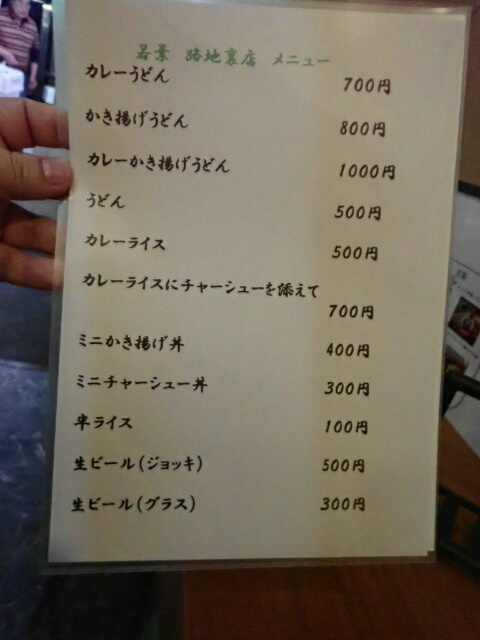 若景 路地裏店 メニュー
カレーうどん 700円
かき揚げうどん 800円
カレーかき揚げうどん 1000円
うどん 500円
カレーライス 500円
カレーライスにチャーシューを添えて
700円
ミニかき揚げ丼 400円
ミニチャーシュー丼 300円
半ライス 100円
生ビール(ジョッキ) 500円
生ビール(グラス) 300円